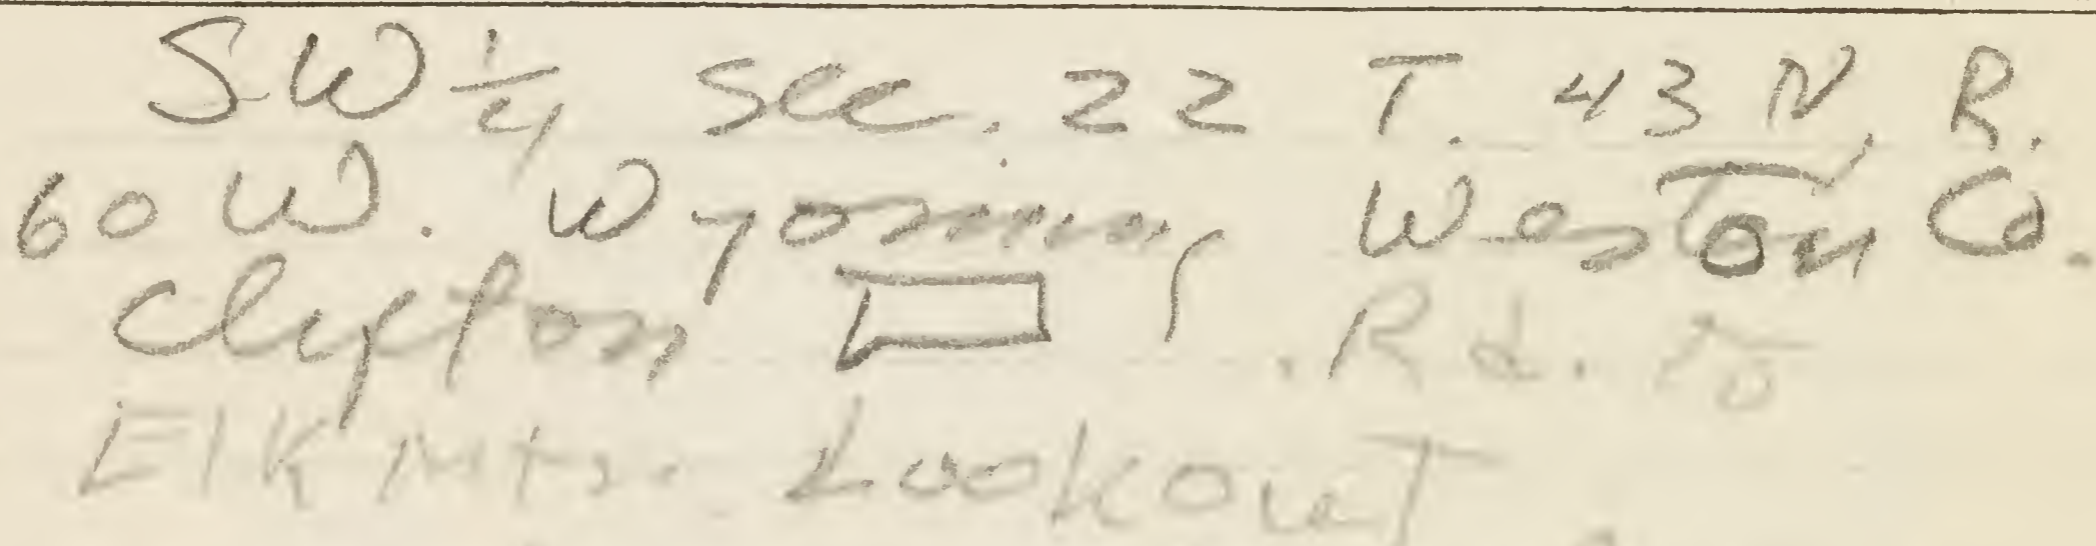 SW 1/4 Sec. 22 T. 43 N, R.
60 W. Wyoming, Weston Co.
Clifton □ , Rd. to
Elk Mtn. Lookout